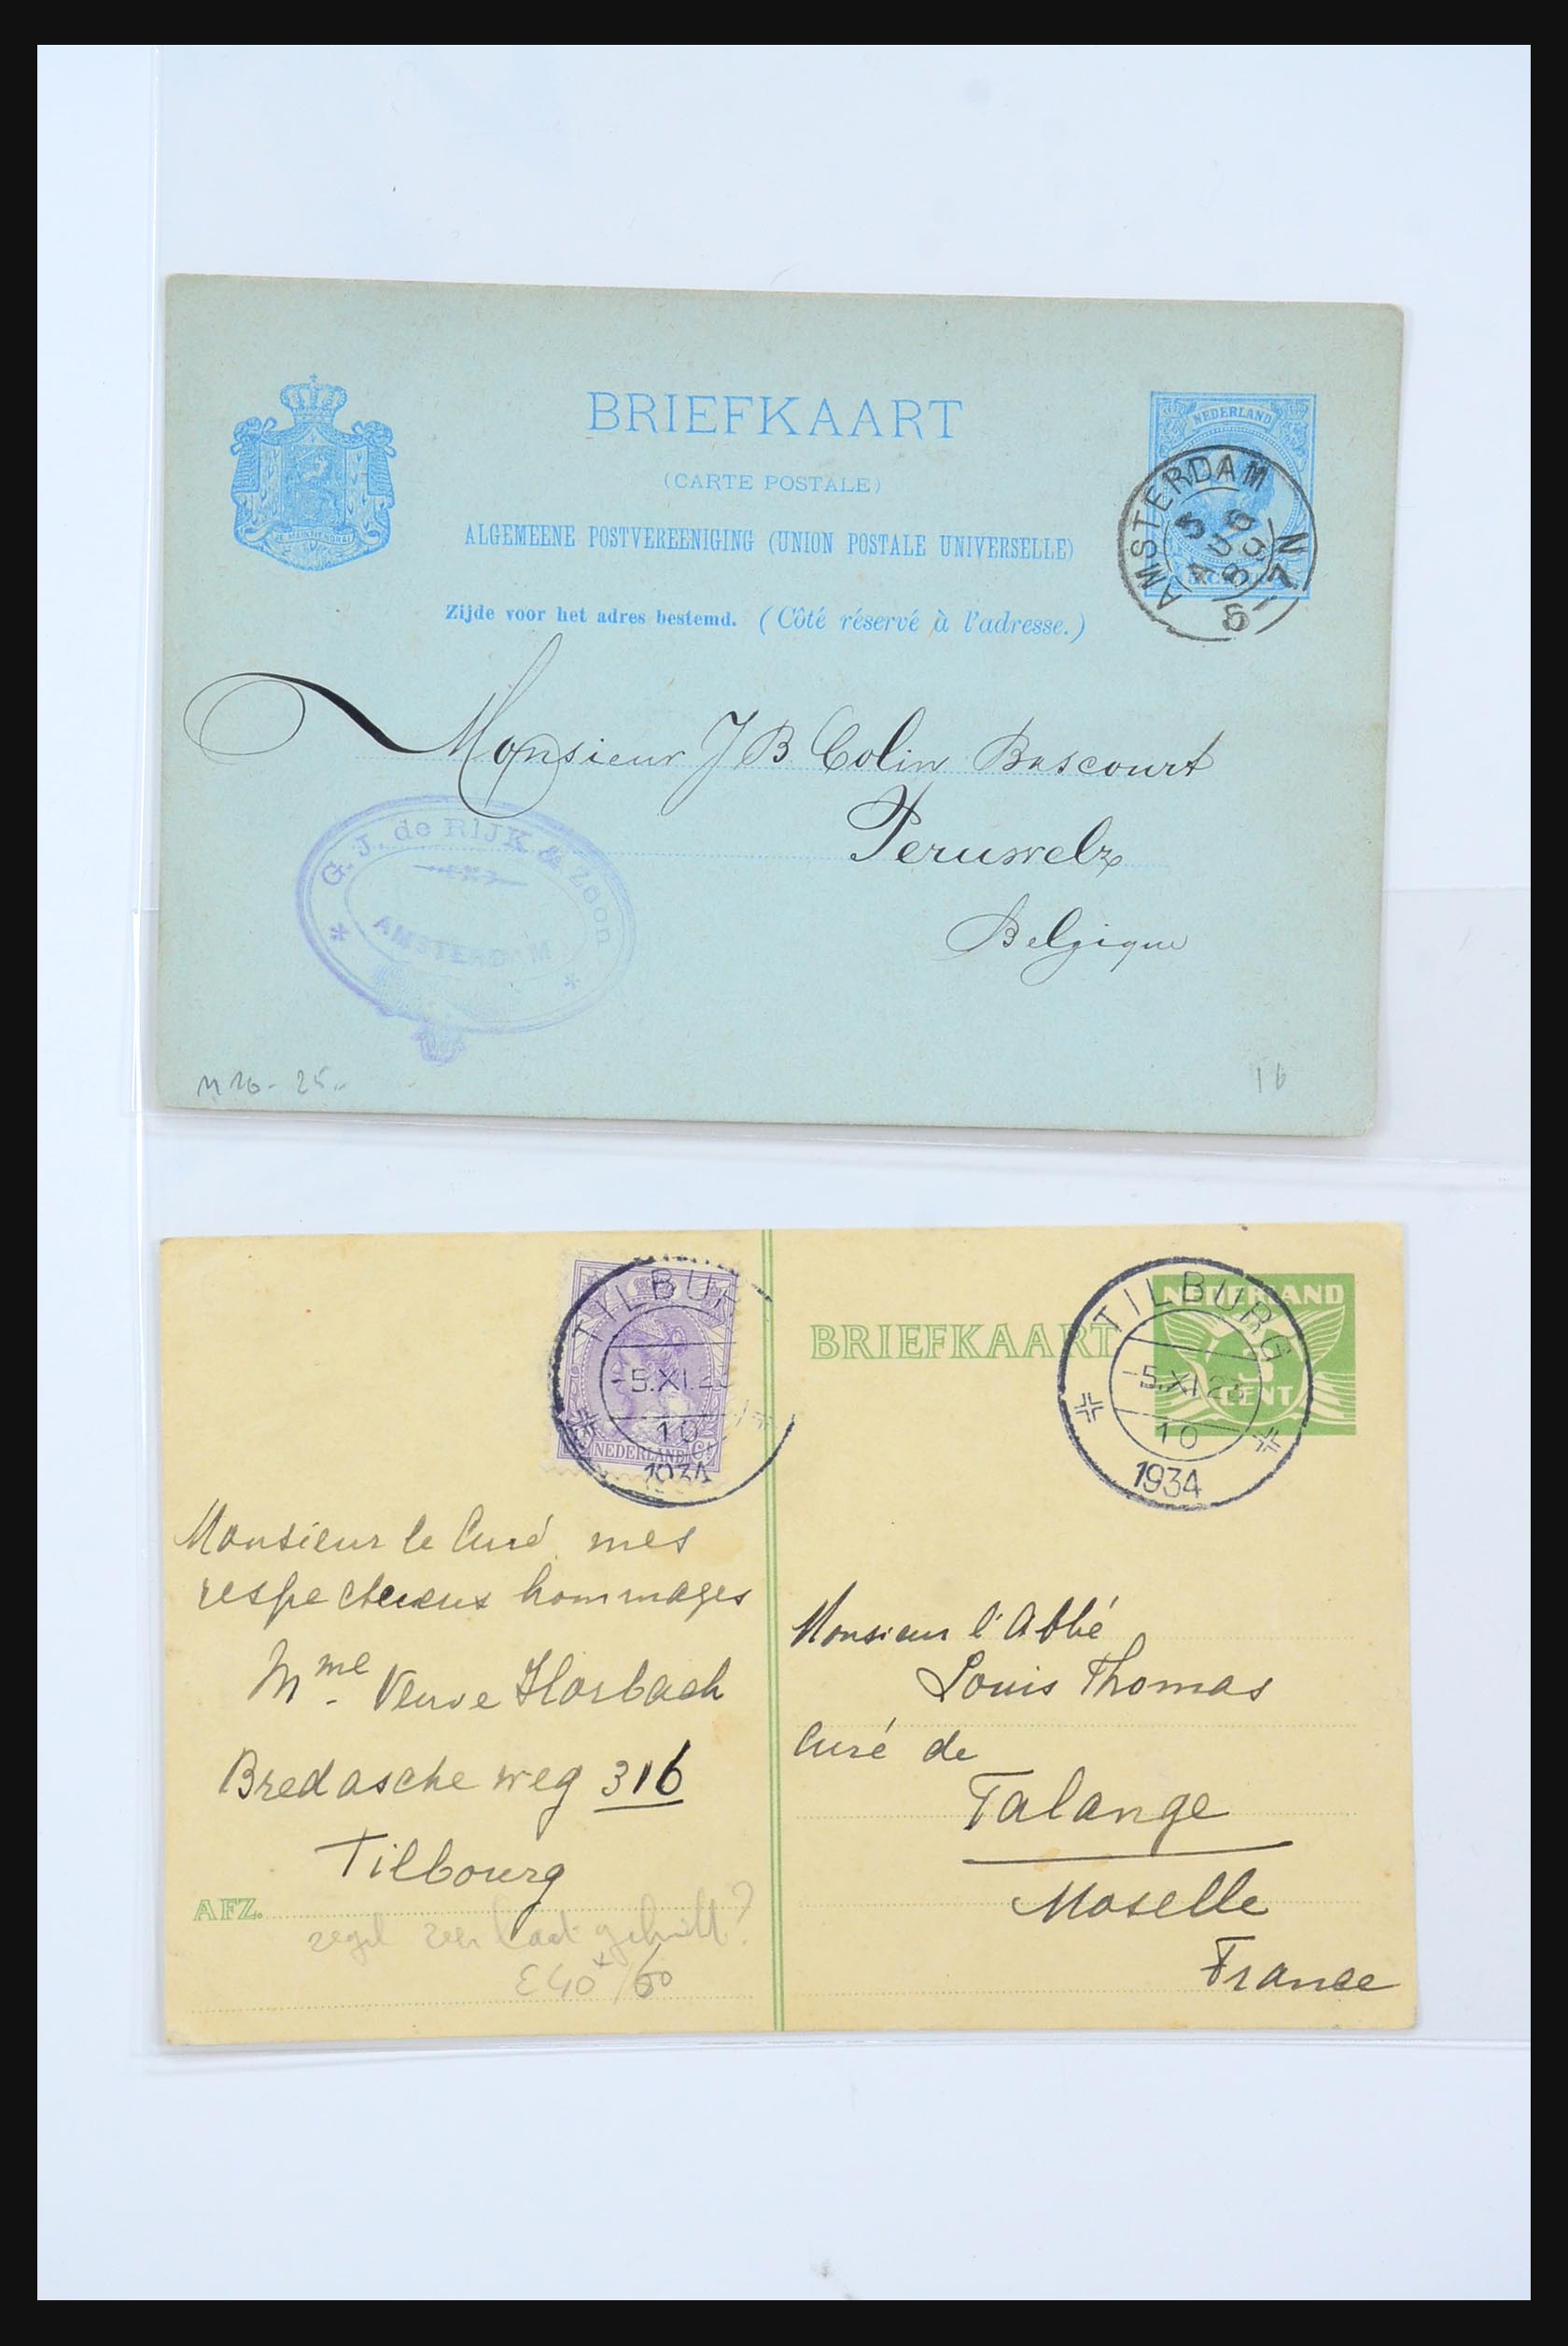 BRIEFKAART
(CARTE POSTALE)
ALGEMEENE POSTVEREENIGING (UNION POSTALE UNIVERSELLE)
Zijde voor het adres bestemd. (Côté réservé à l'adresse.)
JE MAINTIENDRAI
NEDERLAND
AMSTERDAM
5
AUG
96
5
7N
Monsieur J B Colin Bascourt
Peruwelz
Belgique
G. J. de RIJK & Zoon
AMSTERDAM
M 16 - 25.-
16
TILBUR
-5.XI.23
10
1934
NEDERLAND Ct
BRIEFKAART
NEDERLAND
3
CENT
TILBURG
-5.XI.23
10
1934
Monsieur le Curé mes
respectueux hommages
Mme Veuve Horbach
Bredasche weg 316
Tilbourg
AFZ.
zegel zeer laat gebruikt?
E40+/60
Monsieur l'Abbé
Louis Thomas
Curé de
Talange
Moselle
France